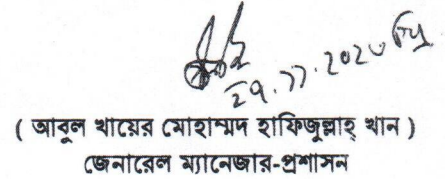 ২৭.১১.২০২০ খ্রিঃ
( আবুল খায়ের মোহাম্মদ হাফিজুল্লাহ্ খান )
জেনারেল ম্যানেজার-প্রশাসন